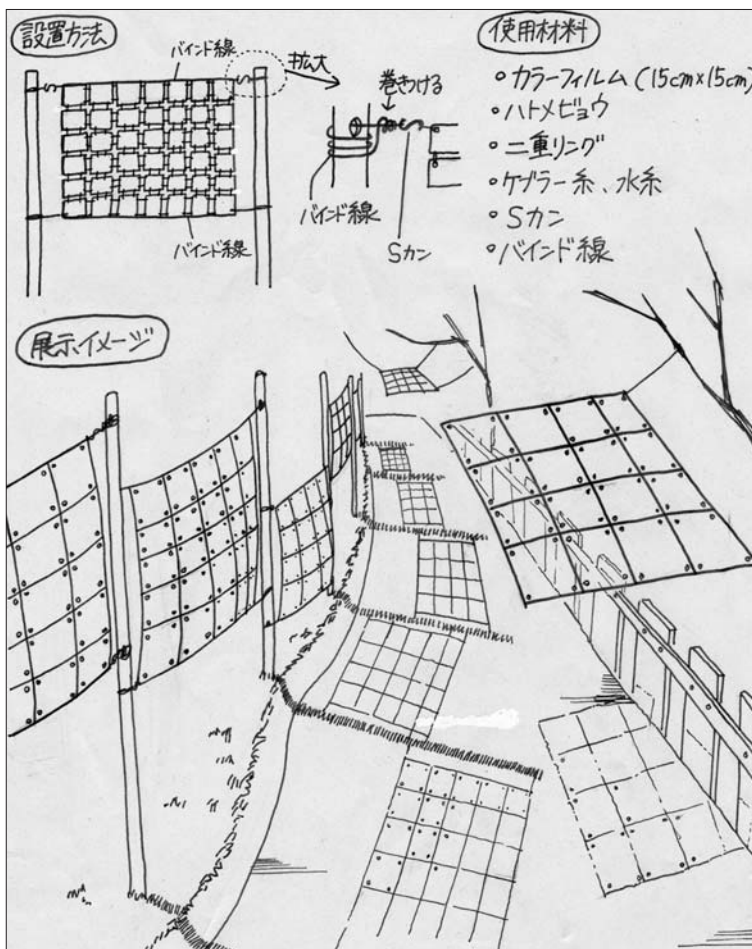 設置方法
バインド線
拡大
バインド線
巻きつける
バインド線
Sカン
使用材料
○カラーフィルム(15cm×15cm)
○ハトメビョウ
○二重リング
○ケブラー糸、水糸
○Sカン
○バインド線
展示イメージ